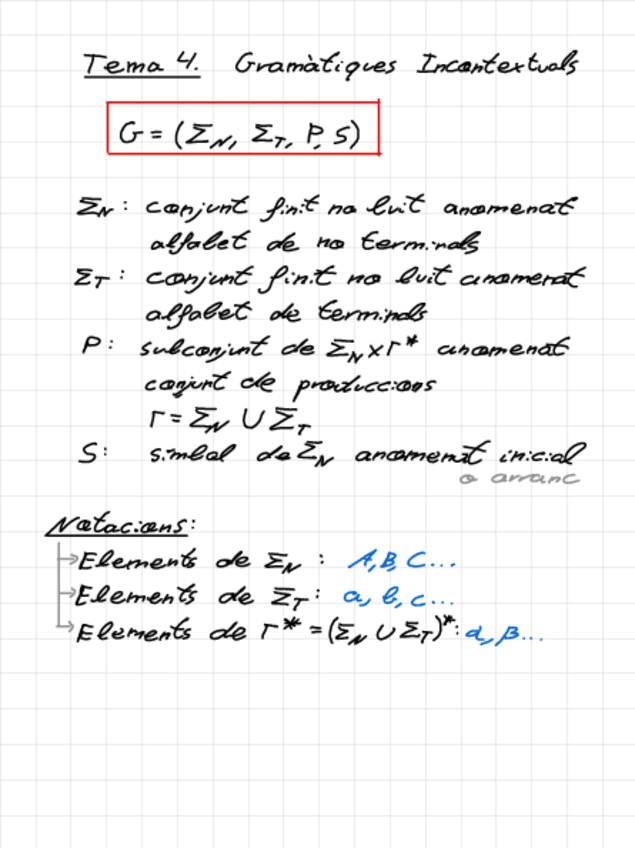 Tema 4. Gramàtiques Incontextuals
G = (Σ_N, Σ_T, P, S)
Σ_N: conjunt finit no buit anomenat
alfabet de no terminals
Σ_T: conjunt finit no buit anomenat
alfabet de terminals
P: subconjunt de Σ_N × Γ* anomenat
conjunt de produccions
Γ = Σ_N ∪ Σ_T
S: símbol de Σ_N anomenat inicial
o arranc
Notacions:
→ Elements de Σ_N : A, B, C...
→ Elements de Σ_T : a, b, c...
→ Elements de Γ* = (Σ_N ∪ Σ_T)*: α, β...